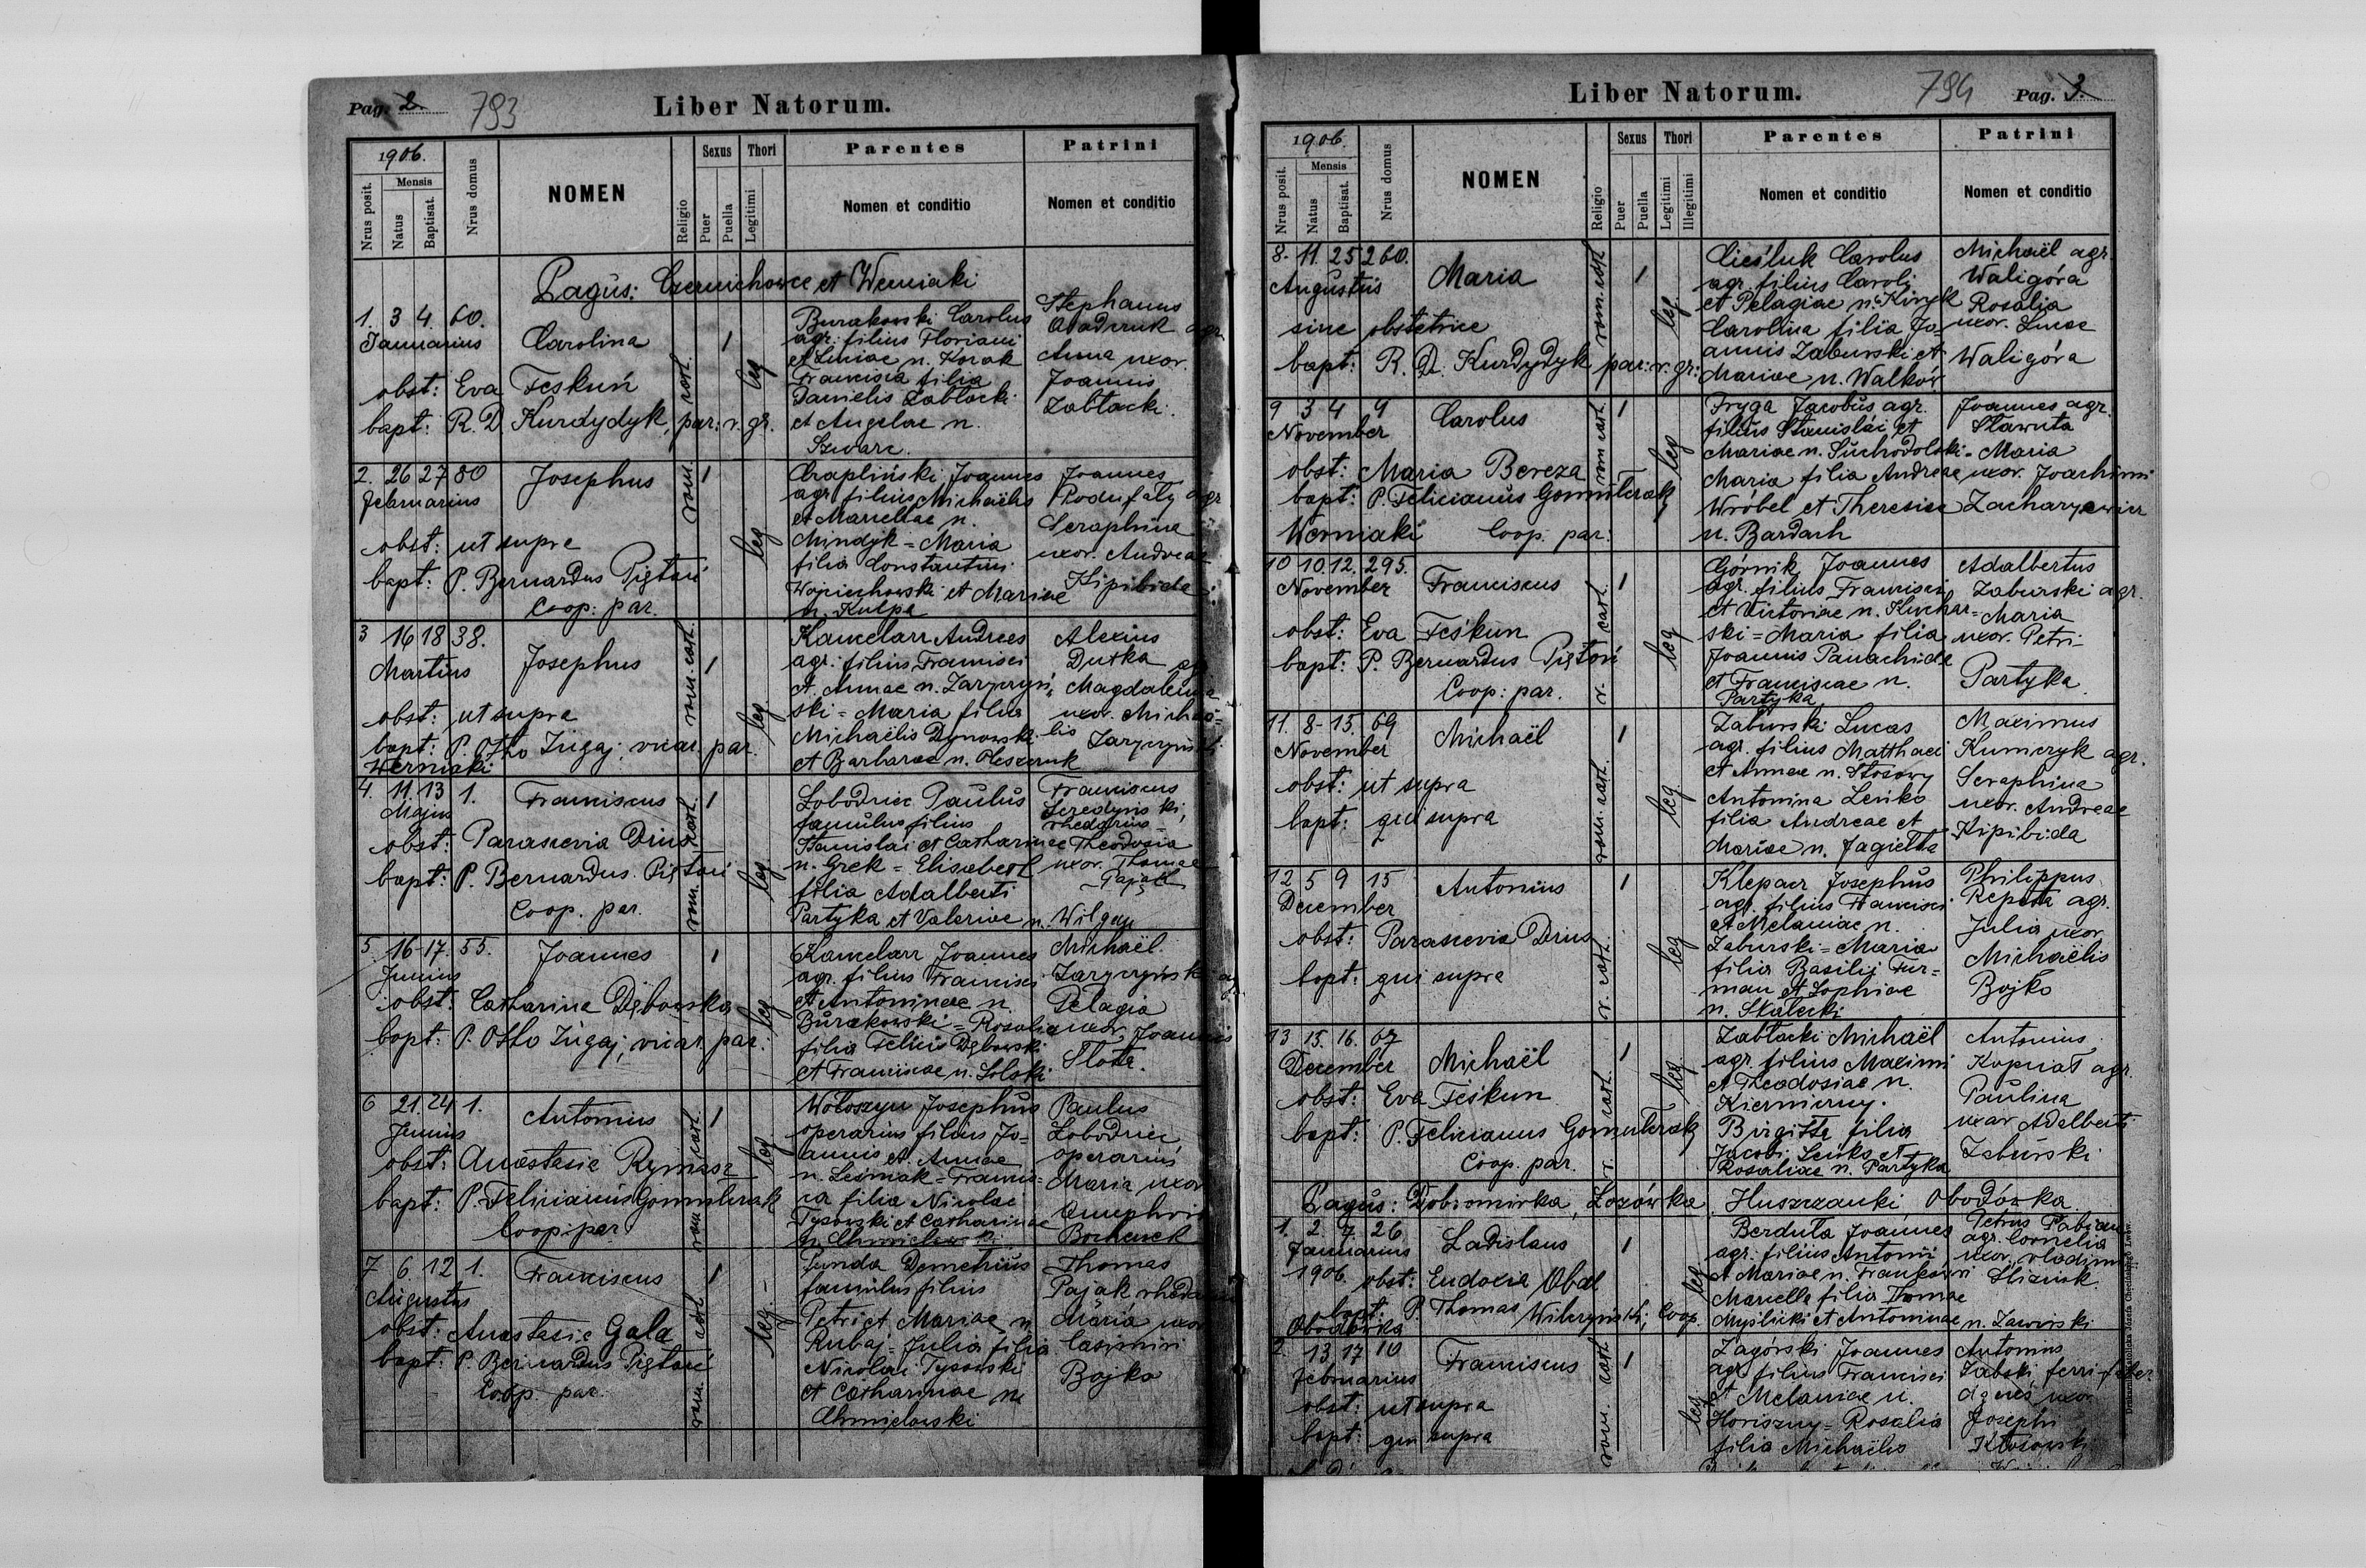 Pag. 2 793 Liber Natorum.
1906.
Nrus posit.
Mensis
Natus
Baptisat.
Nrus domus
NOMEN
Religio
Sexus
Puer
Puella
Thori
Legitimi
Parentes
Nomen et conditio
Patrini
Nomen et conditio
Pagus: Czernichowce et Werniaki
1. 3 4. 60.
Januarius
Carolina
1
rom. cath.
leg
obst: Eva Feskuń
bapt: R. D. Kurdydyk, par: r. gr.
Burakowski Carolus
agr. filius Floriani
et Luciae n. Horak
Francisca filia
Danielis Zabłocki
et Angelae n.
Szwarc.
Stephanus
agr
Anna uxor.
Joannis
Zabłocki.
2. 26 27 80
Februarius
Josephus
1
rom
leg
obst: ut supra
bapt: P. Bernardus Piętoń
Coop: par.
Czapliński Joannes
agr. filius Michaëlis
et Marcellae n.
Mindyk = Maria
filia Constantini
Wojciechowski et Mariae
n. Kulpa
Joannes
agr
Seraphina
uxor. Andreae
Kipibida
3 16 18 38.
Martius
Josephus
1
rom. cath.
leg
obst: ut supra
bapt: P. Otto Zugaj, vicar. par.
Werniaki
Kancelarz Andreas
agr. filius Francisci
et Annae n. Zarzyczyń
ski = Maria filia
Michaëlis Dynowski
et Barbarae n. Oleszczuk
Alexius
Dutka agr
Magdalena
uxor. Michaë=
lis Zarzyczyński
4. 11. 13 1.
Majus
Franciscus
1
rom. cath.
leg
obst: Parascevia Drius
bapt: P. Bernardus Piętoń
Coop. par.
Łobodziec Paulus
famulus filius
Stanislai et Catharinae
n. Grek = Elisabeth
filia Adalberti
Partyka et Valeriae n. Wilgan
Franciscus
rhedarius =
Theodosia
uxor. Thomae
Pająk
5. 16 17. 55.
Junius
Joannes
1
leg
obst: Catharina Dębowska
bapt: P. Otto Zugaj, vicar. par:
Kancelarz Joannes
agr. filius Francisci
et Antoninae n.
Burakowski = Rosalia
filia Felicis Dębowski
et Franciscae n. Solski
Michaël
Zarzyczyński agr
Pelagia
uxor Joannis
Słota.
6 21. 24 1.
Junius
Antonius
1
rom cath.
leg
obst: Anastasia Rymasz
bapt: P. Felicianus Gomulczak
Coop: par
Wołoszyn Josephus
operarius filius Jo=
annis et Annae
n. Leśniak = Francis=
ca filia Nicolai
Tysowski et Catharinae
n. Chmielowski
Paulus
Łobodziec
operarius
Maria uxor
Onuphrii
Bocheńek
7 6. 12 1.
Augustus
Franciscus
1
rom. cath
leg. -
obst: Anastasia Gala
bapt: P. Bernardus Piętoń
Coop. par.
Punda Demetrius
famulus filius
Petri et Mariae n
Rubaj = Julia filia
Nicolai Tysowski
et Catharinae n.
Chmielowski
Thomas
Pająk rhedarius
Maria uxor
Casimiri
Bojko
Liber Natorum. 794 Pag. 3.
1906.
Nrus posit.
Mensis
Natus
Baptisat.
Nrus domus
NOMEN
Religio
Sexus
Puer
Puella
Thori
Legitimi
Illegitimi
Parentes
Nomen et conditio
Patrini
Nomen et conditio
8. 11. 25 260.
Augustus
Maria
1
rom. cath
leg
sine obstetrice
bapt: R. D. Kurdydyk par: r. gr:
Cieśluk Carolus
agr. filius Caroli
et Pelagiae n. Kiryk
Carolina filia Jo
annis Zaburski et
Mariae n. Walków
Michaël agr.
Waligóra
Rosalia
uxor. Lucae
Waligóra
9 3 4 9
November
Carolus
1
rom cath.
leg
obst: Maria Bereza
bapt: P. Felicianus Gomulczak
Werniaki Coop. par:
Fryga Jacobus agr.
filius Stanislai et
Mariae n. Suchodolski =
Maria filia Andreae
Wróbel et Theresiae
n. Bardach
Joannes agr.
Sławuta
Maria
uxor. Joachimi
Zacharyewicz
10 10. 12. 295.
November
Franciscus
1
r. cath.
leg
obst: Eva Feśkun
bapt: P. Bernardus Piętoń
Coop: par.
Górnik Joannes
agr. filius Francisci
et Victoriae n. Kuchar=
ski = Maria filia
Joannis Panachida
et Franciscae n.
Partyka
Adalbertus
Zaburski agr.
Maria
uxor. Petri
Partyka
11. 8 - 15. 69
November
Michaël
1
rom. cath.
leg
obst: ut supra
bapt: qui supra
Zaburski Lucas
agr. filius Matthaei
et Annae n. Stosowy
Antonina Leńko
filia Andreae et
Mariae n. Jagiełła
Maximus
Kumczyk agr.
Seraphina
uxor. Andreae
Kipibida
12 5 9 15
December
Antonius
1
r. cath.
leg
obst: Parascevia Drius
bapt: qui supra
Klepacz Josephus
agr. filius Francisci
et Melaniae n.
Zaburski = Maria
filia Basilii Fur=
man et Sophiae
n. Skalecki
Philippus
Repeta agr.
Julia uxor
Michaëlis
Bojko
13 15. 16. 67
December
Michaël
1
r. cath.
leg.
obst: Eva Feśkun
bapt: P. Felicianus Gomulczak
Coop. par.
Zabłocki Michaël
agr. filius Maximi
et Theodosiae n.
Kierniczny.
Birgitta filia
Jacobi Leńko et
Rosaliae n. Partyka
Antonius
Kopniat agr.
Paulina
uxor Adalberti
Zaburski
Pagus: Dobromirka, Łozówka, Huszczanki, Obodówka.
1. 2. 7. 26
Januarius
1906.
Ladislaus
1
leg
obst: Eudoxia Obal
bapt: P. Thomas Wilczyński, Coop.
Obodówka
Berduta Joannes
agr. filius Antonii
et Mariae n. Frankowski
Marcella filia Thomae
Myślicki et Antoninae n. Zaworski
Petrus Fabian
agr. Cornelia
uxor. Vladimiri
2 13 17 10
Februarius
Franciscus
1
rom. cath
leg
obst: ut supra
bapt: qui supra
Zagórski Joannes
agr. filius Francisci
et Melaniae n.
Horiszny = Rosalia
filia Michaëlis
Antonius
Zabski, ferri-faber
Agnes uxor
Josephi
Kłosowski